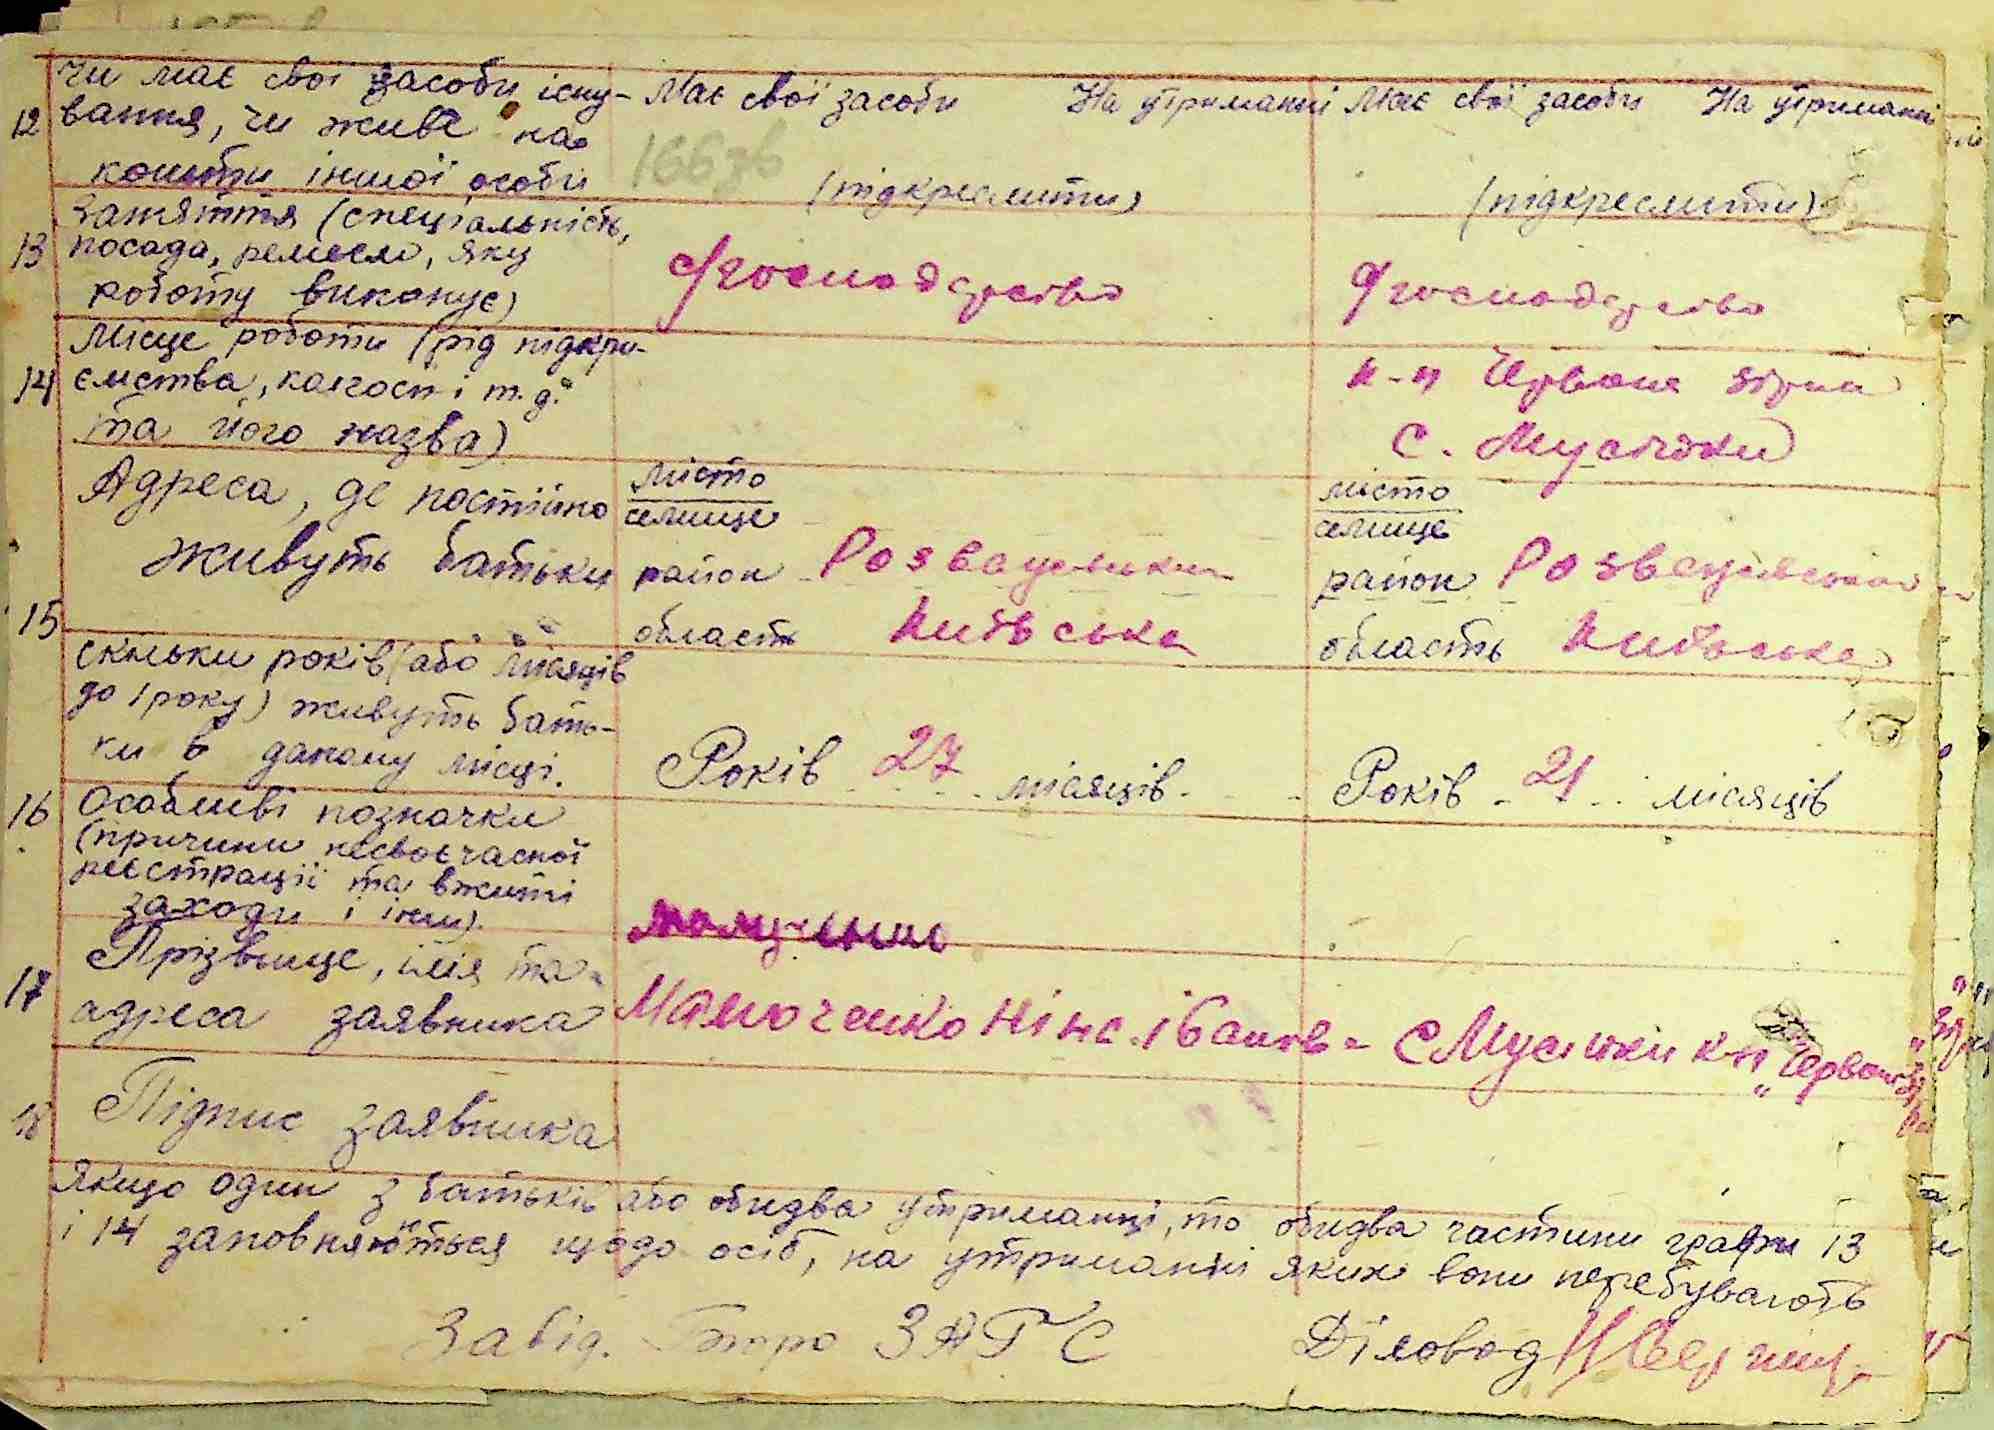 12 Чи має свої засоби існу-
вання, чи живе на
кошти іншої особи
Має свої засоби На утриманні
(підкреслити)
Має свої засоби На утриманні
(підкреслити)
13 Заняття (спеціальність,
посада, ремесло, яку
роботу виконує)
господарство
господарство
14 Місце роботи (рід підпри-
ємства, колгосп і т.д.
та його назва)
к-п Червона зірка
с. Мусійки
Адреса, де постійно
живуть батьки
місто
селище
район Розважівський
область Київська
місто
селище
район Розважівський
область Київська
15 скільки років (або місяців
до 1 року) живуть бать-
ки в даному місці.
Років 27 місяців
Років 21 місяців
16 Особливі позначки
(причини несвоєчасної
реєстрації та вжиті
заходи і інш).
17 Прізвище, імя та
адреса заявника
Ніна Іванов-
с Мусійки к-п "Червона
18 Підпис заявника
Якщо один з батьків або обидва утриманці, то обидва частини графи 13
і 14 заповняються щодо осіб, на утриманні яких вони перебувають
Завід. Бюро ЗАГС Діловод